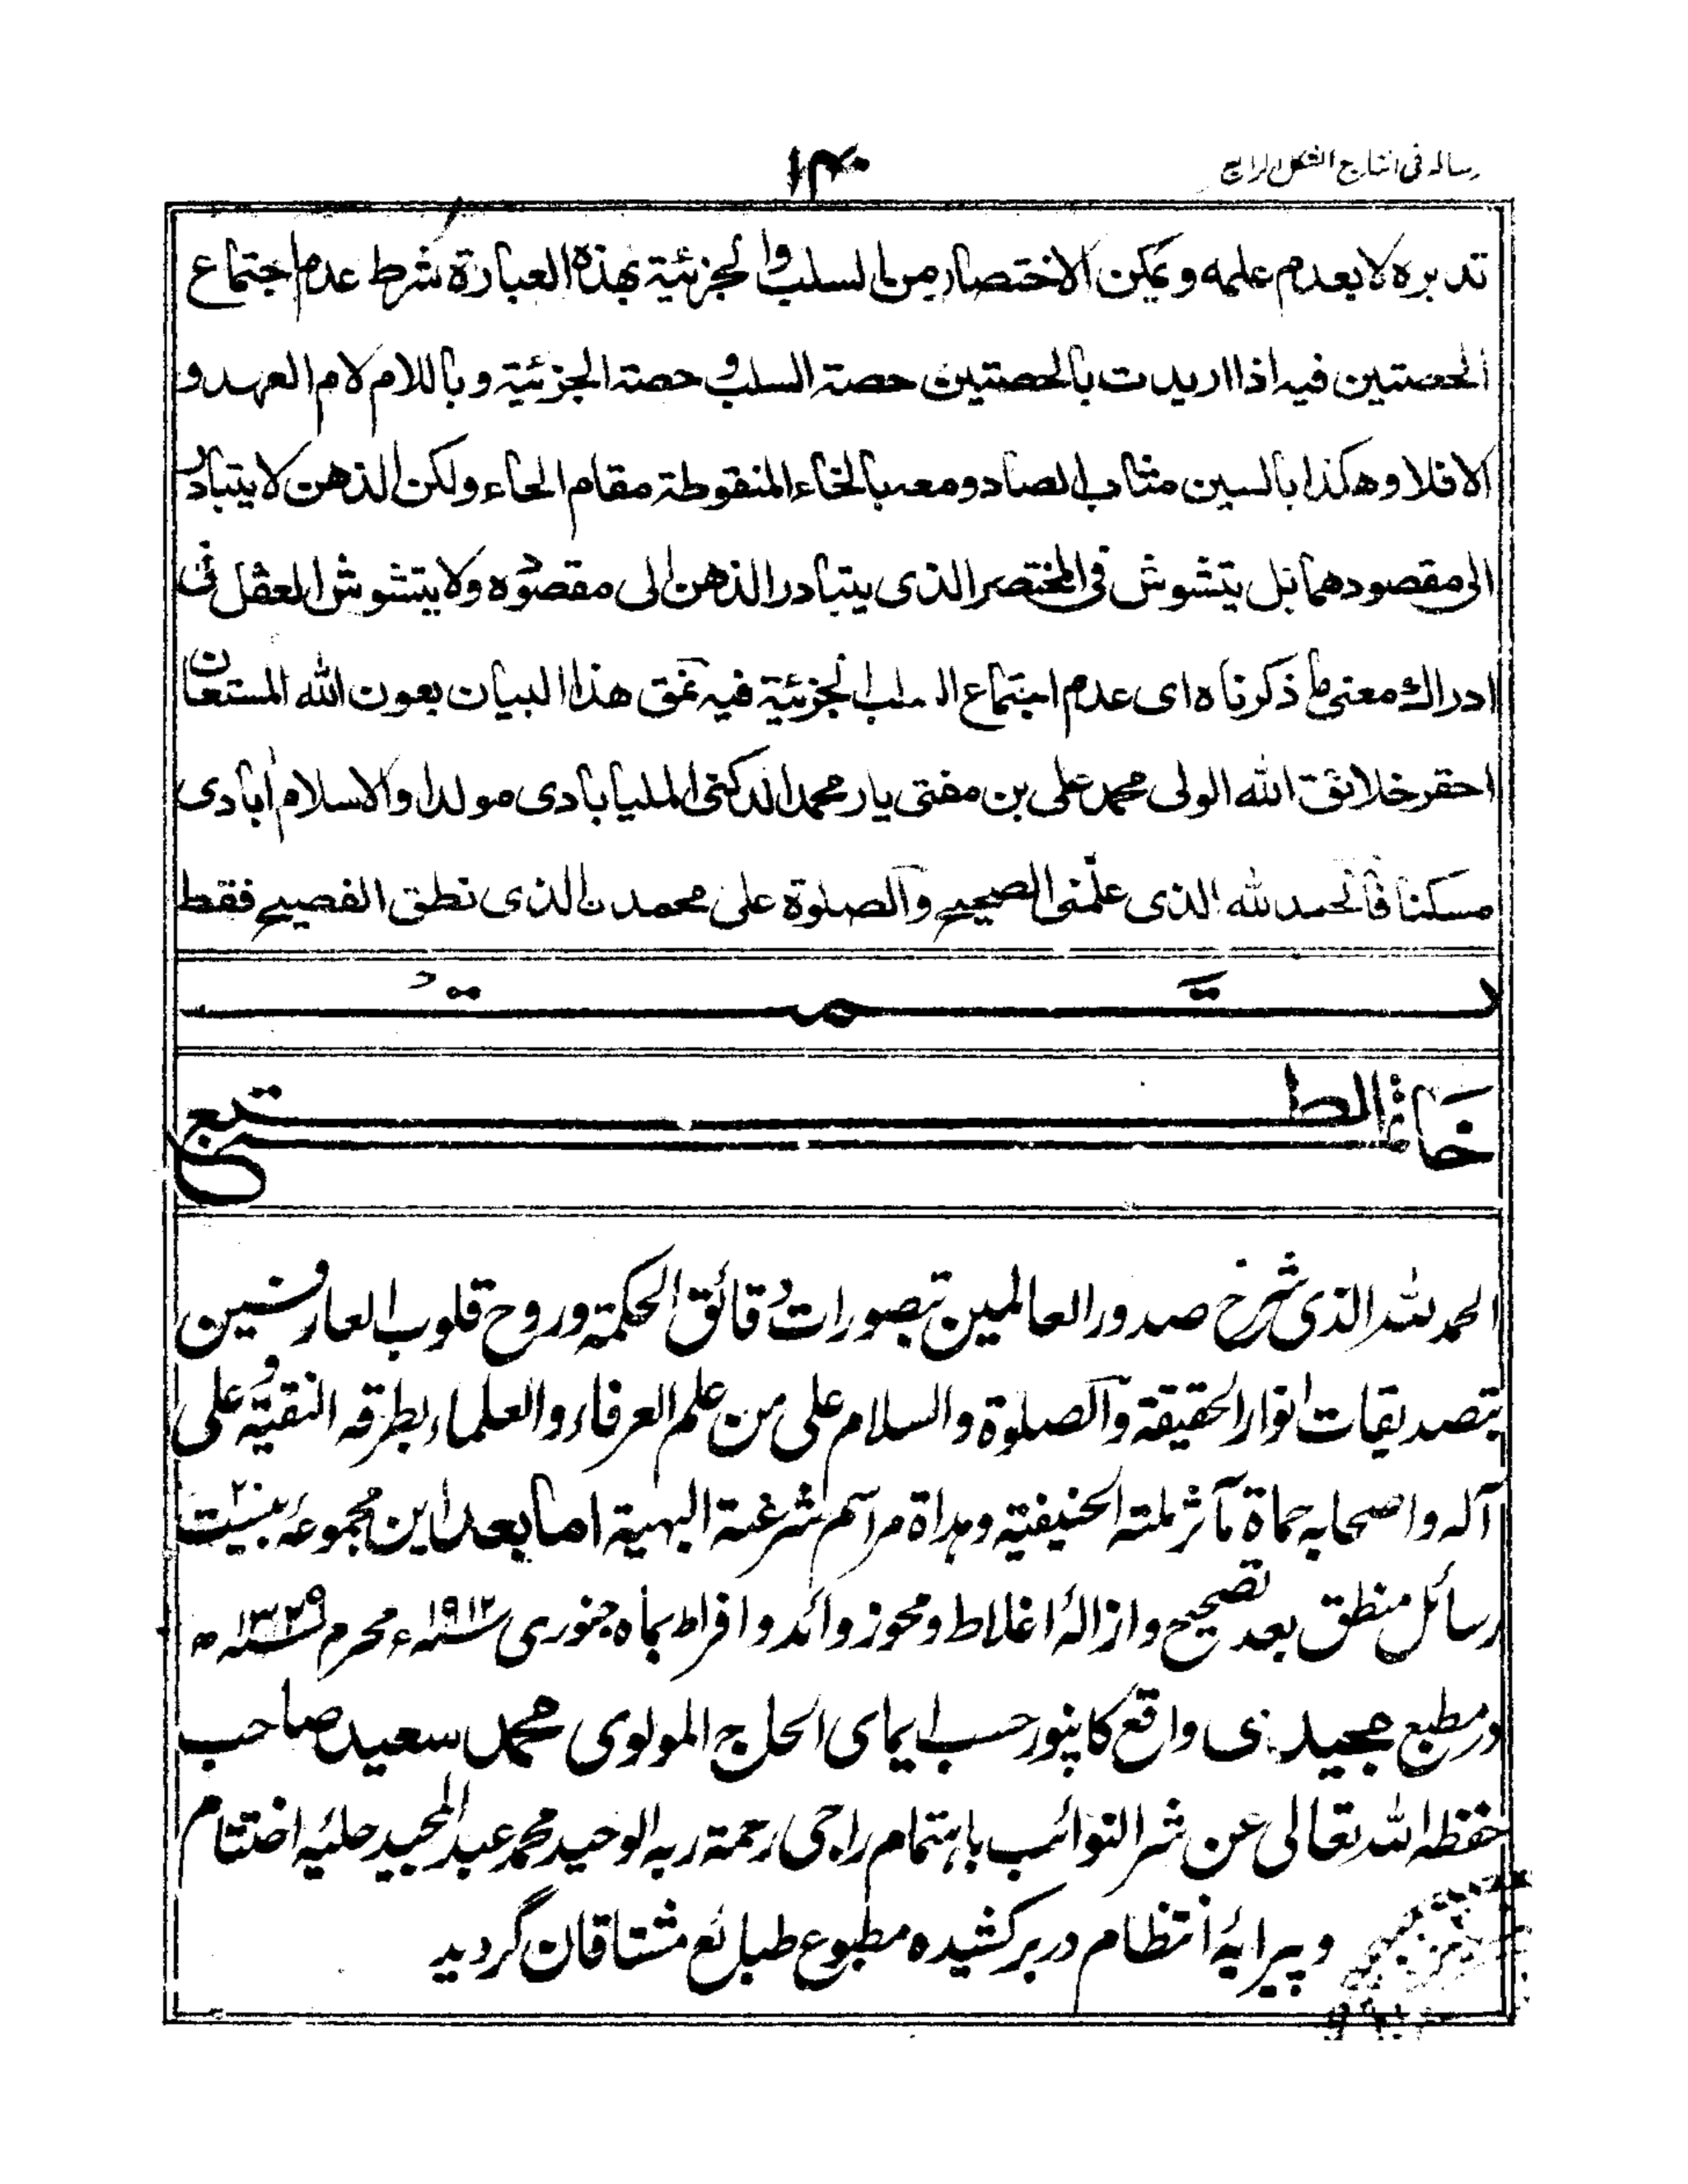 رساله فی انتاج الشکل الرابع
۱۴۰
تدبره لا بعدم علمه ویمکن الاختصار من السلب والجزئیة بهذه العبارة شرط عدم اجتماع
الحصتین فیه اذا اریدت بالحصتین حصة السلب و حصة الجزئیة وباللام لام العهد و
الا فلا وهکذا بالسین مثاب الصاد ومعه بالخاء المنقوطة مقام الحاء ولکن الذهن لا یتبادر
الی مقصودهما بل یتشوش فی المختصر الذی یتبادر الذهن الی مقصوده ولا یتشوش العقل فی
ادراك معنی ما ذکرناه ای عدم اجتماع السلب الجزئیة فیه نمق هذا البیان بعون الله المستعان
احقر خلائق الله الولی محمد علی بن مفتی یار محمد الدکنی الملیابادی مولدا والاسلام ابادی
مسکنا فالحمد لله الذی علمنی الصحیح والصلوة علی محمد ن الذی نطق الفصیح فقط
تمت
خاتمة الطبع
الحمد لله الذی شرح صدور العالمین بتصورات دقائق الحکمة وروح قلوب العارفین
بتصدیقات انوار الحقیقة والصلوة والسلام علی من علم العرفاء والعلماء بطرقه النقیة وعلی
آله واصحابه حماة مآثر ملته الحنیفیة وهداة مراسم شرعته البهیة اما بعد این مجموعهٔ بیست
رسائل منطق بعد تصحیح وازالهٔ اغلاط ومحوزوائد وافراط بماه جنوری سنه ۱۹۱۲ء محرم سنه ۱۳۲۹ه
درمطبع مجیدی واقع کانپور حسب ایمای الحاج المولوی محمد سعید صاحب
حفظه الله تعالی عن شر النوائب باهتمام راجی رحمة ربه الوحید محمد عبد المجید حلیهٔ اختتام
وپیرایهٔ انتظام در برکشیده مطبوع طبائع مشتاقان گردید